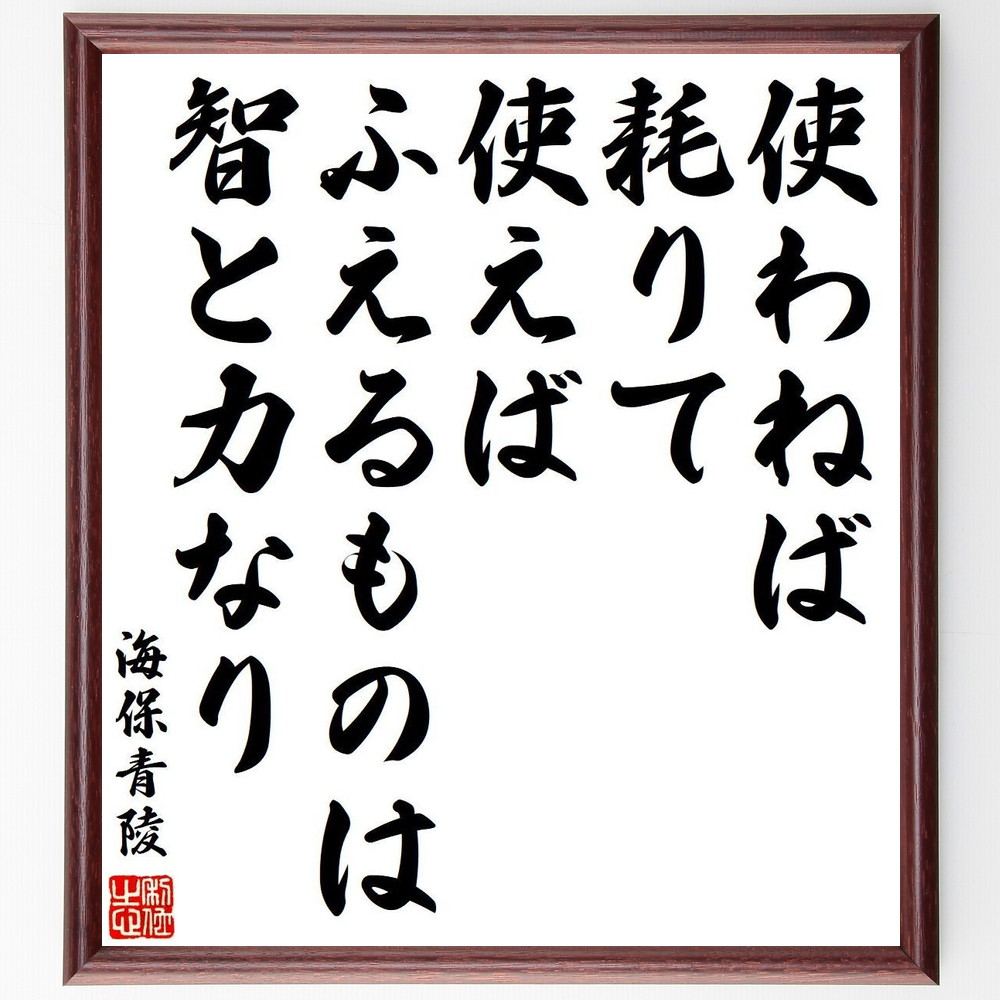 使わねば
耗りて
使えば
ふえるものは
智と力なり
海保青陵